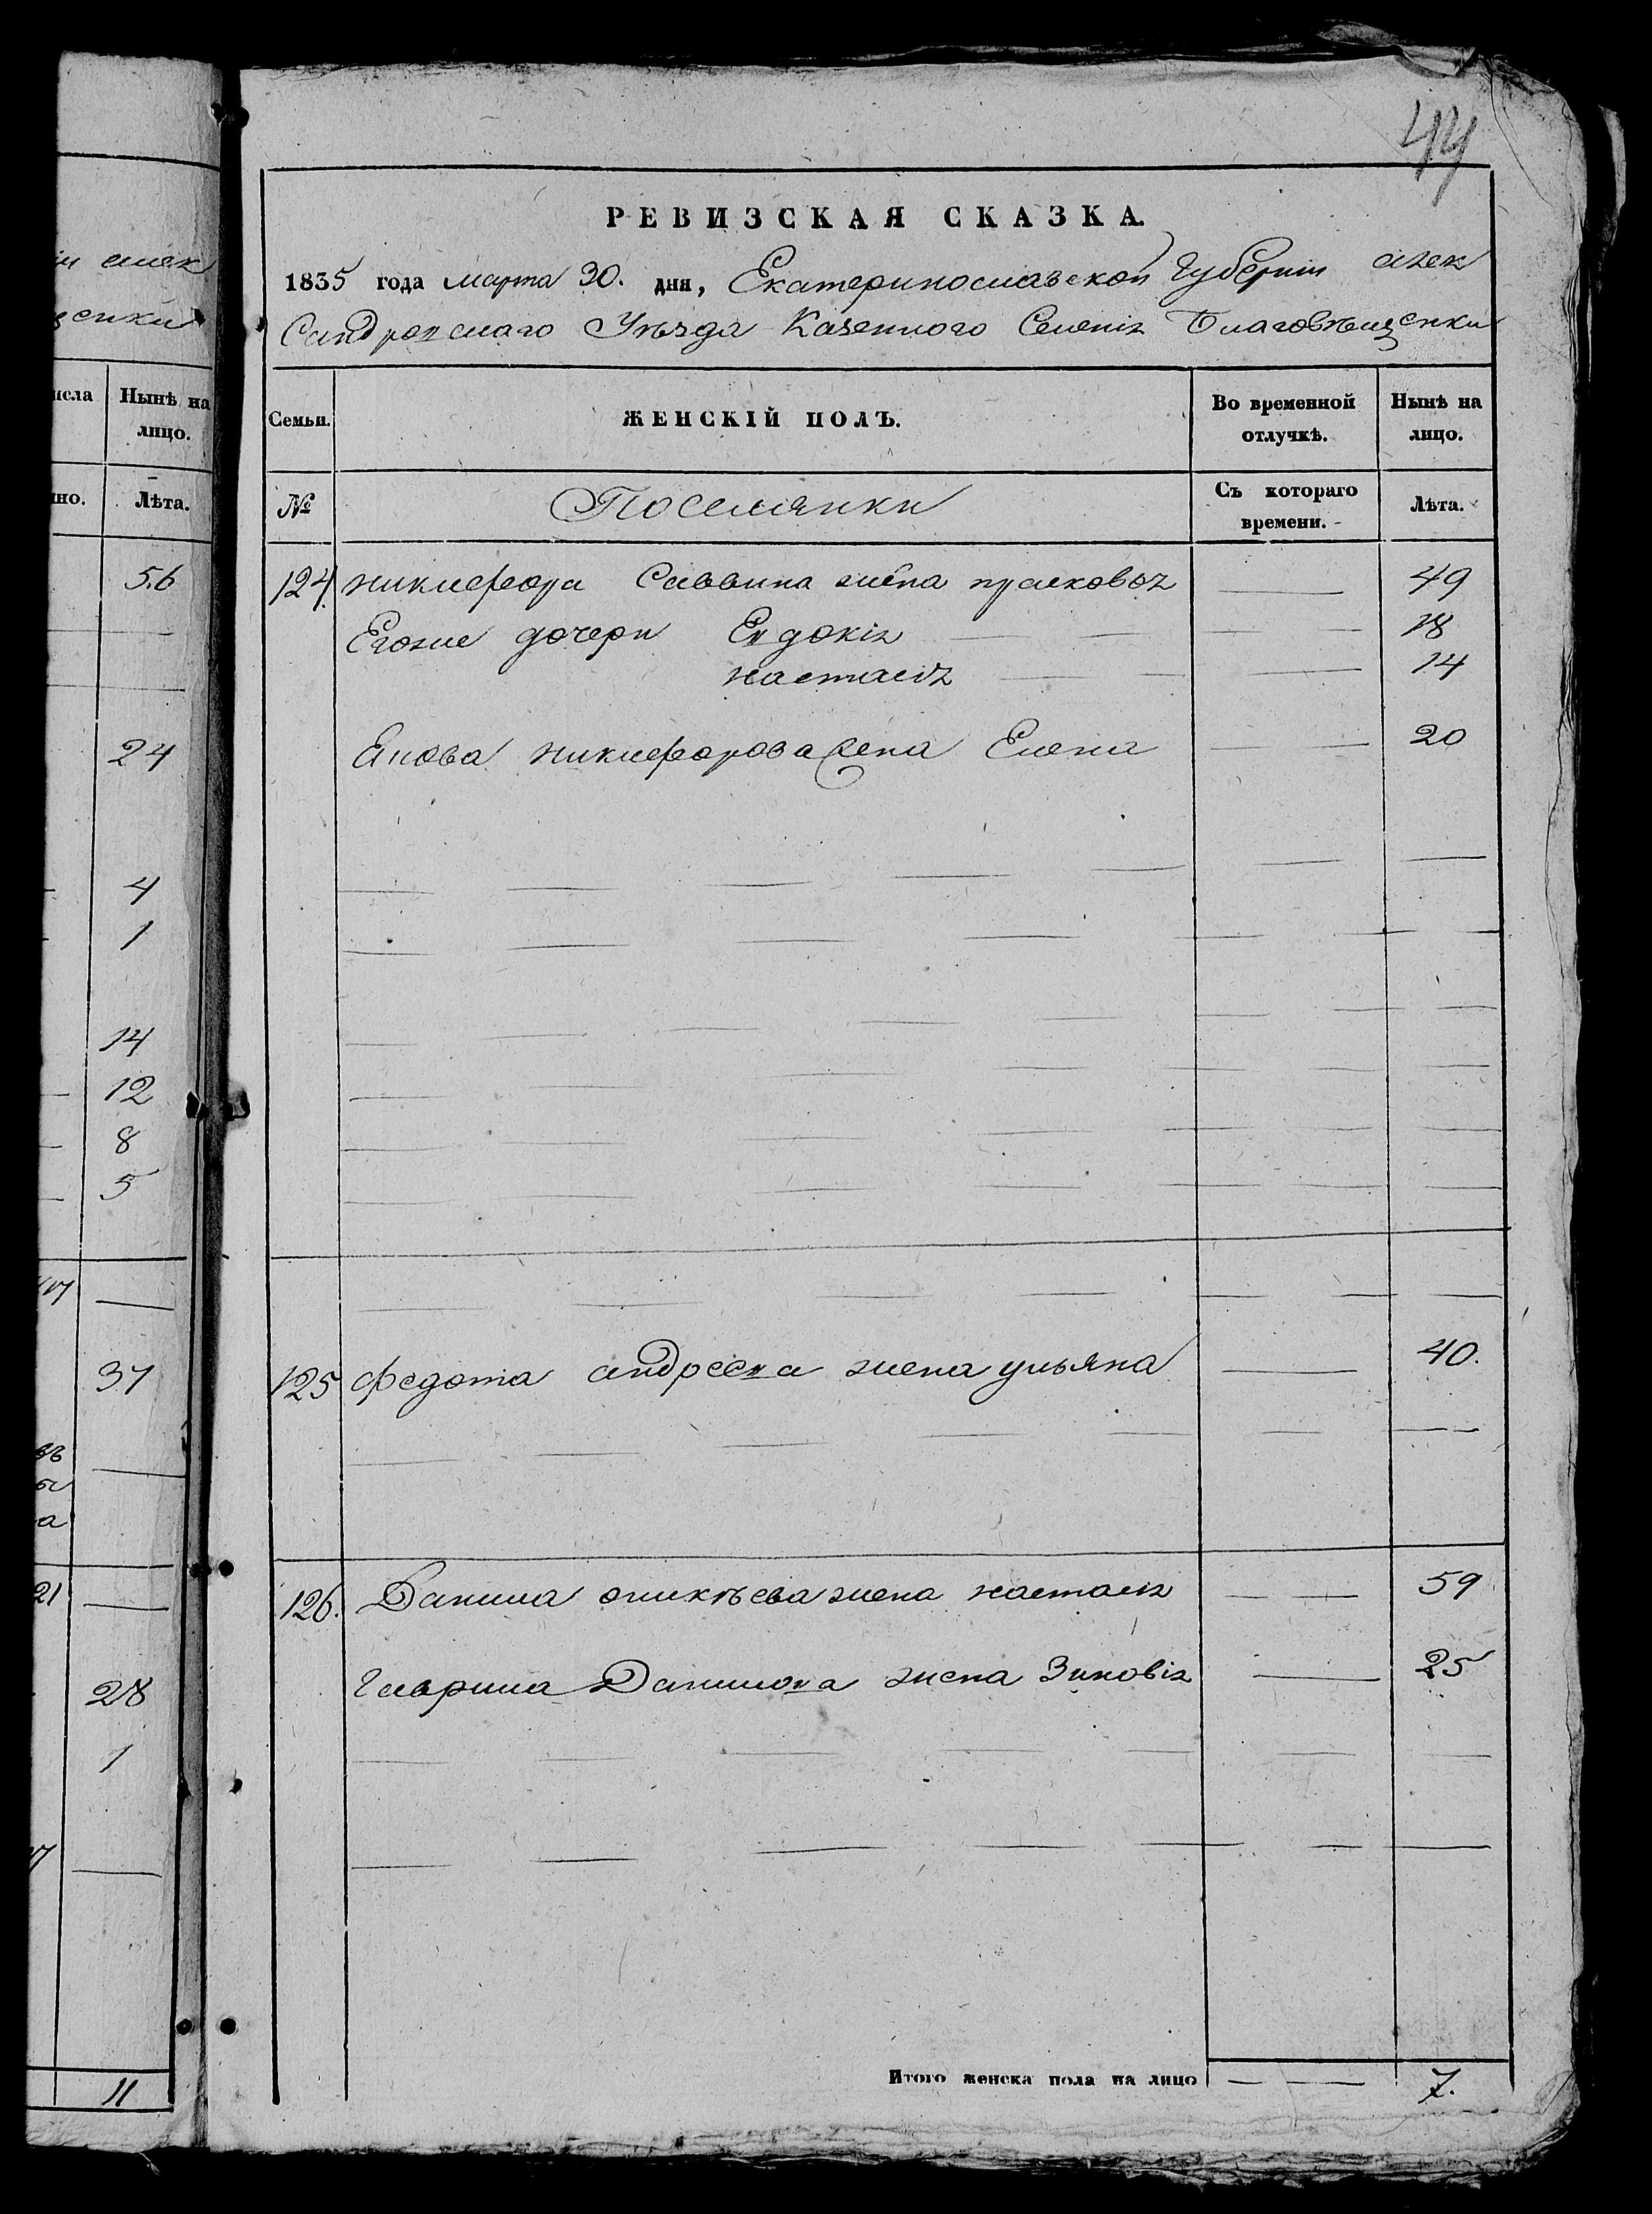 44
РЕВИЗСКАЯ СКАЗКА.
1835 года марта 30. дня, Екатеринославской Губерніи алек
Сандровскаго Уѣзда Казенного Селенія Благовѣщенки
Семьи. ЖЕНСКІЙ ПОЛЪ. Во временной отлучкѣ. Нынѣ на лицо.
№ Поселянки Съ котораго времени. Лѣта.
124. никифора Саввина жена прасковья 49
Егоже дочери Евдокія 18
настасія 14
Якова никифорова жена Елена 20
125 федота андреева жена ульяна 40.
126. Данила аникѣева жена настасія 59
Гаврила Данилова жена Зиновія 25
Итого женска пола на лицо 7.
исла Нынѣ на лицо.
но. Лѣта.
56
24
4
1
14
12
8
5
37
21
28
1
11